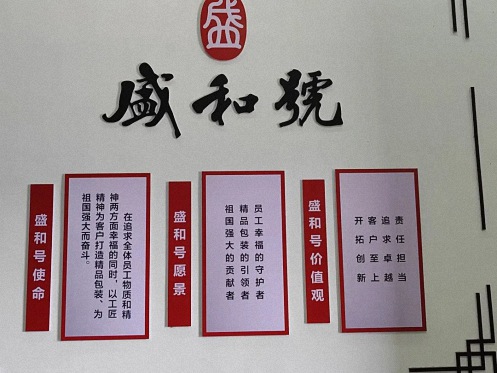 盛
盛和號
盛和号使命
在追求全体员工物质和精
神两方面幸福的同时，以工匠
精神为客户打造精品包装、为
祖国强大而奋斗。
盛和号愿景
员工幸福的守护者
精品包装的引领者
祖国强大的贡献者
盛和号价值观
责任担当
追求卓越
客户至上
开拓创新